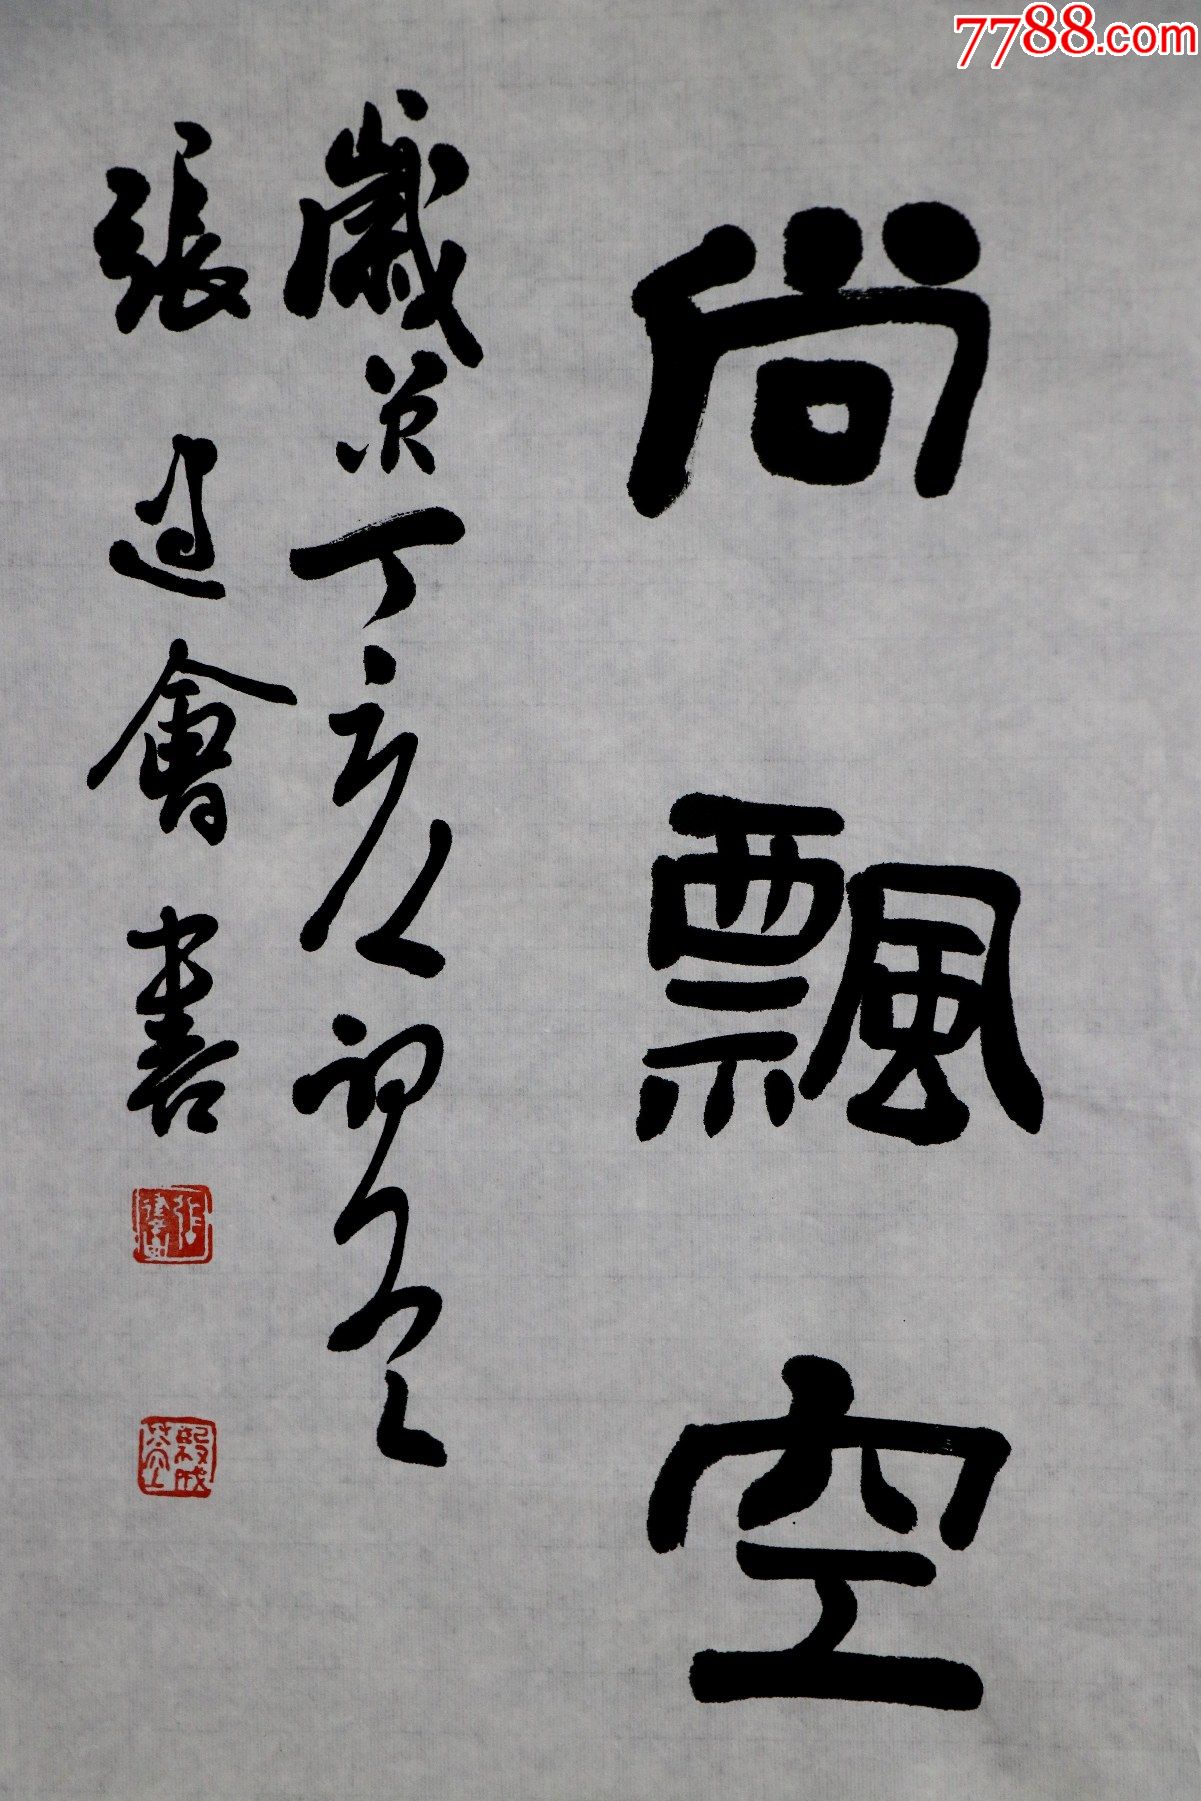 7788.com
尚飄空
歲在丁亥初冬
張過會書